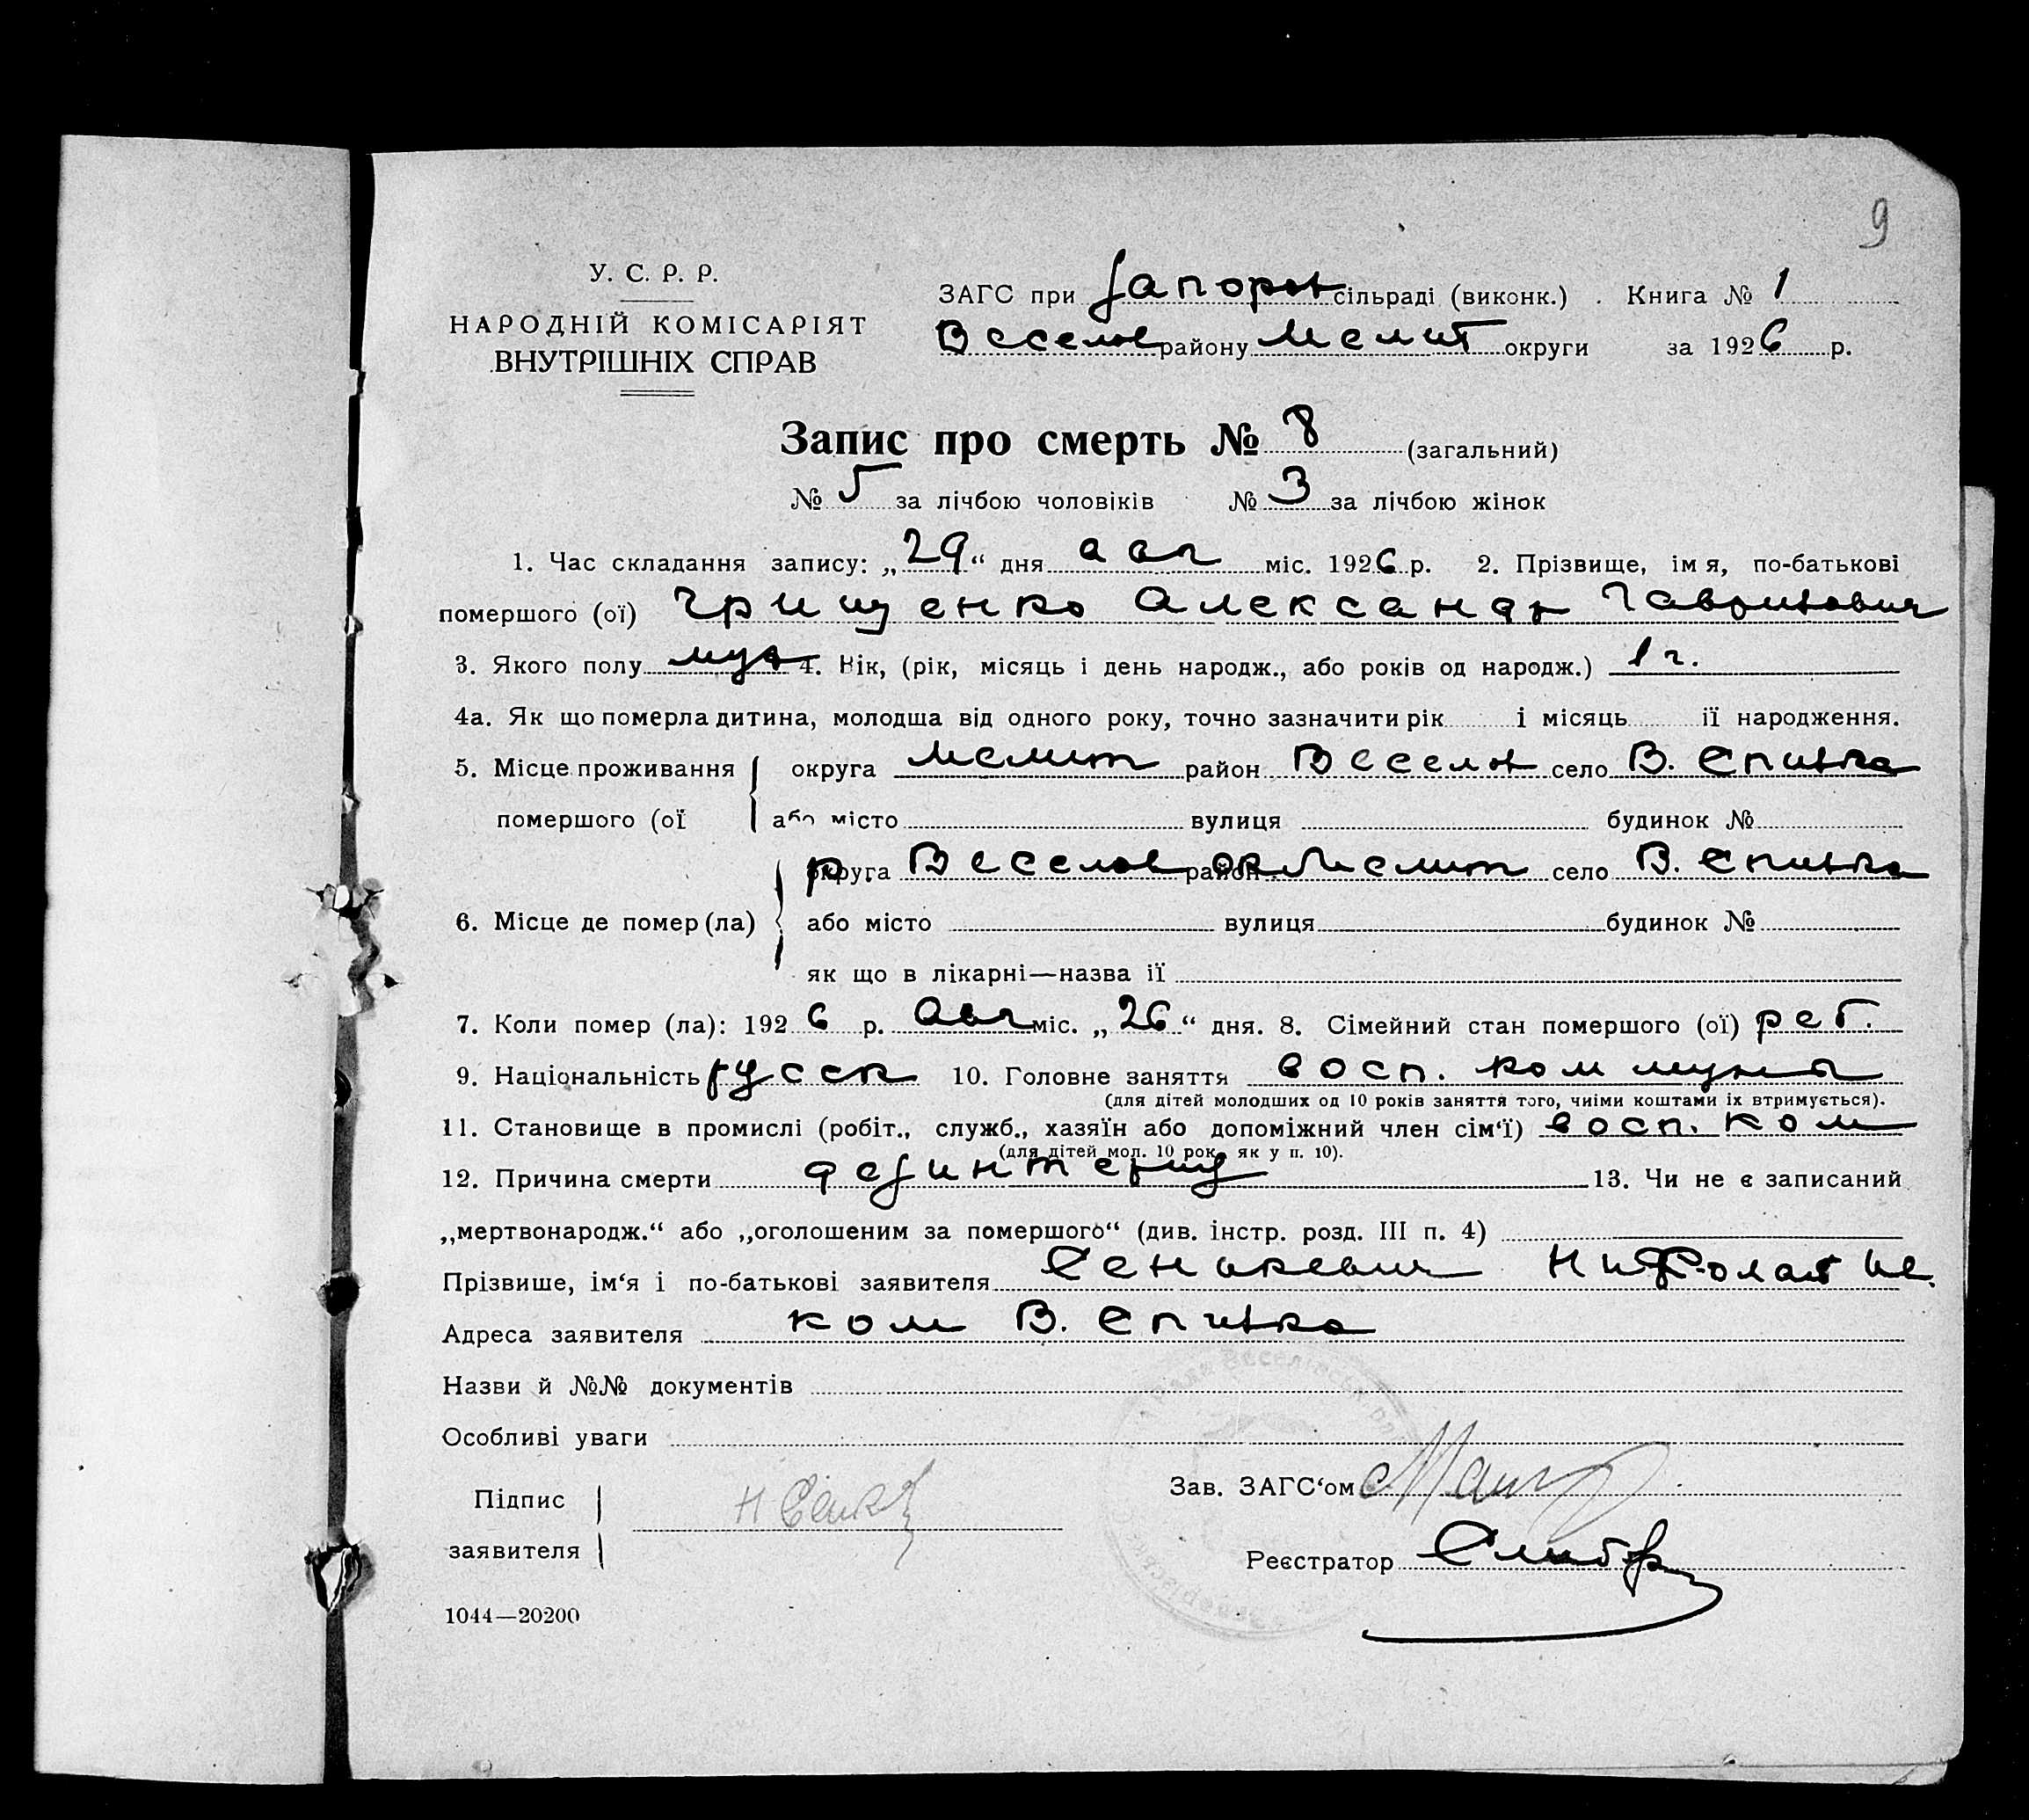 9
У. С. Р. Р.
НАРОДНІЙ КОМІСАРІЯТ
ВНУТРІШНІХ СПРАВ
ЗАГС при Запорож сільраді (виконк.) . Книга № 1
Веселов району Мелит округи за 1926 р.
Запис про смерть № 8 (загальний)
№ 5 за лічбою чоловіків № 3 за лічбою жінок
1. Час складання запису: „29“ дня авг міс. 1926 р. 2. Прізвище, імя, по-батькові
помершого (ої) Грищенко Александр Гаврилович
3. Якого полу муж 4. Вік, (рік, місяць і день народж., або років од народж.) 1 г.
4а. Як що померла дитина, молодша від одного року, точно зазначити рік і місяць її народження.
5. Місце проживання округа Мелит район Веселов село В. Спилка
помершого (ої або місто вулиця будинок №
округа Веселов район ок Мелит село В. Спилка
6. Місце де помер (ла) або місто вулиця будинок №
як що в лікарні—назва її
7. Коли помер (ла): 1926 р. Авг міс. „26“ дня. 8. Сімейний стан помершого (ої) реб.
9. Національність русск 10. Головне заняття восп. коммуны
(для дітей молодших од 10 років заняття того, чиіми коштами їх втримується).
11. Становище в промислі (робіт., служб., хазяїн або допоміжний член сім‘ї) восп. ком
(для дітей мол. 10 рок. як у п. 10).
12. Причина смерти дезинтерия 13. Чи не є записаний
„мертвонародж.“ або „оголошеним за помершого“ (див. інстр. розд. III п. 4)
Прізвише, ім‘я і по-батькові заявителя Сенькевич Николай Ив.
Адреса заявителя ком В. Спилка
Назви й №№ документів
Особливі уваги
Підпис
заявителя
Зав. ЗАГС‘ом
Реєстратор
1044—20200